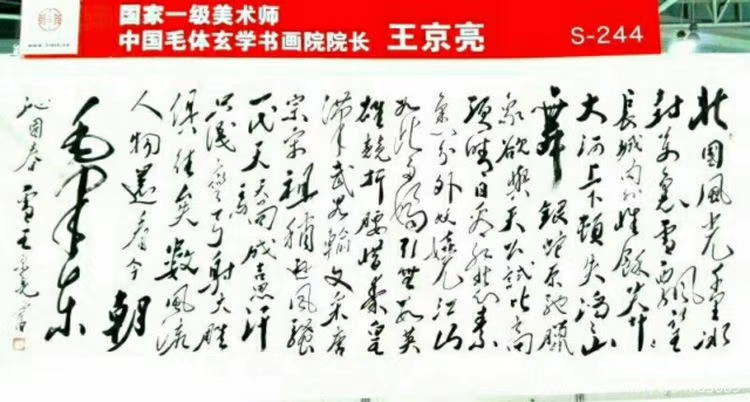 国家一级美术师
中国毛体玄学书画院院长 王京亮
S-244
北国风光千里冰
封万里雪飘望
长城内外惟余莽莽
大河上下顿失滔滔山
舞银蛇原驰腊
象欲与天公试比高
须晴日看红装素
裹分外妖娆江山
如此多娇引无数英
雄竞折腰惜秦皇
汉武略输文采唐
宗宋祖稍逊风骚
一代天骄成吉思汗
只识弯弓射大雕
俱往矣数风流
人物还看今朝
毛泽东
沁园春雪王京亮书